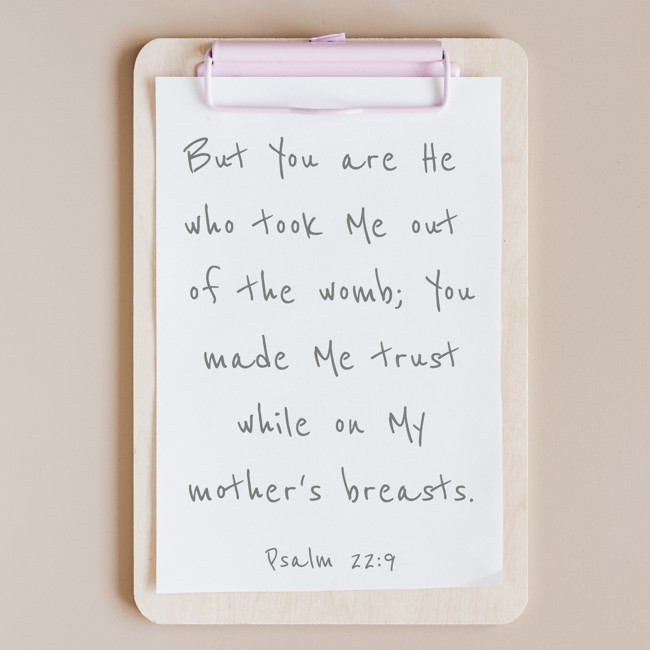 But You are He
who took Me out
of the womb; You
made Me trust
while on My
mother's breasts.
Psalm 22:9